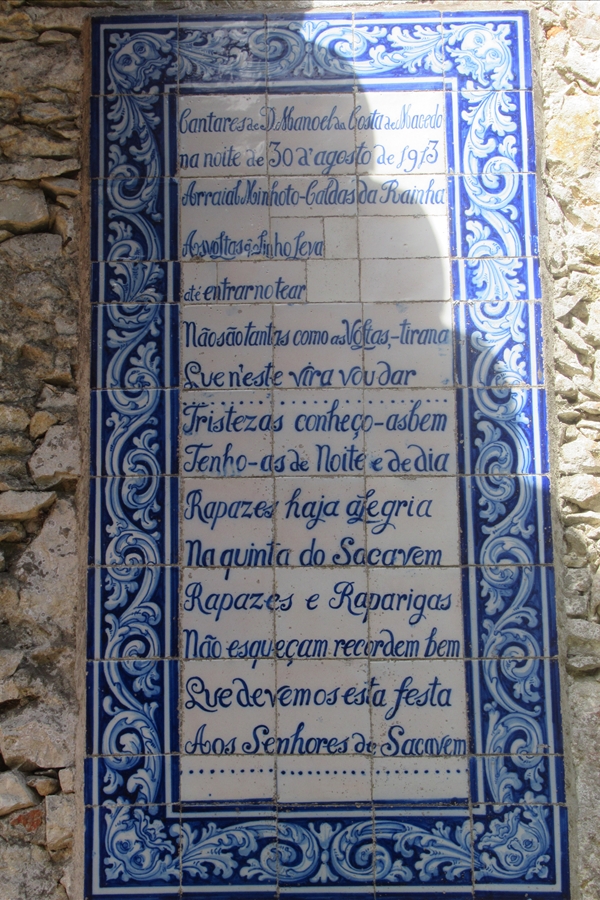 Cantares de D. Manoel da Costa de Macedo
na noite de 30 d'agosto de 1913
Arraial Minhoto-Caldas da Rainha
As voltas q̃ Linho leva
até entrar no tear
Não são tantas como as Voltas,-tirana
Que n'este vira vou dar
Tristezas conheço-as bem
Tenho-as de Noite e de dia
Rapazes haja alegria
Na quinta do Sacavem
Rapazes e Raparigas
Não esqueçam recordem bem
Que devemos esta festa
Aos Senhores de Sacavem